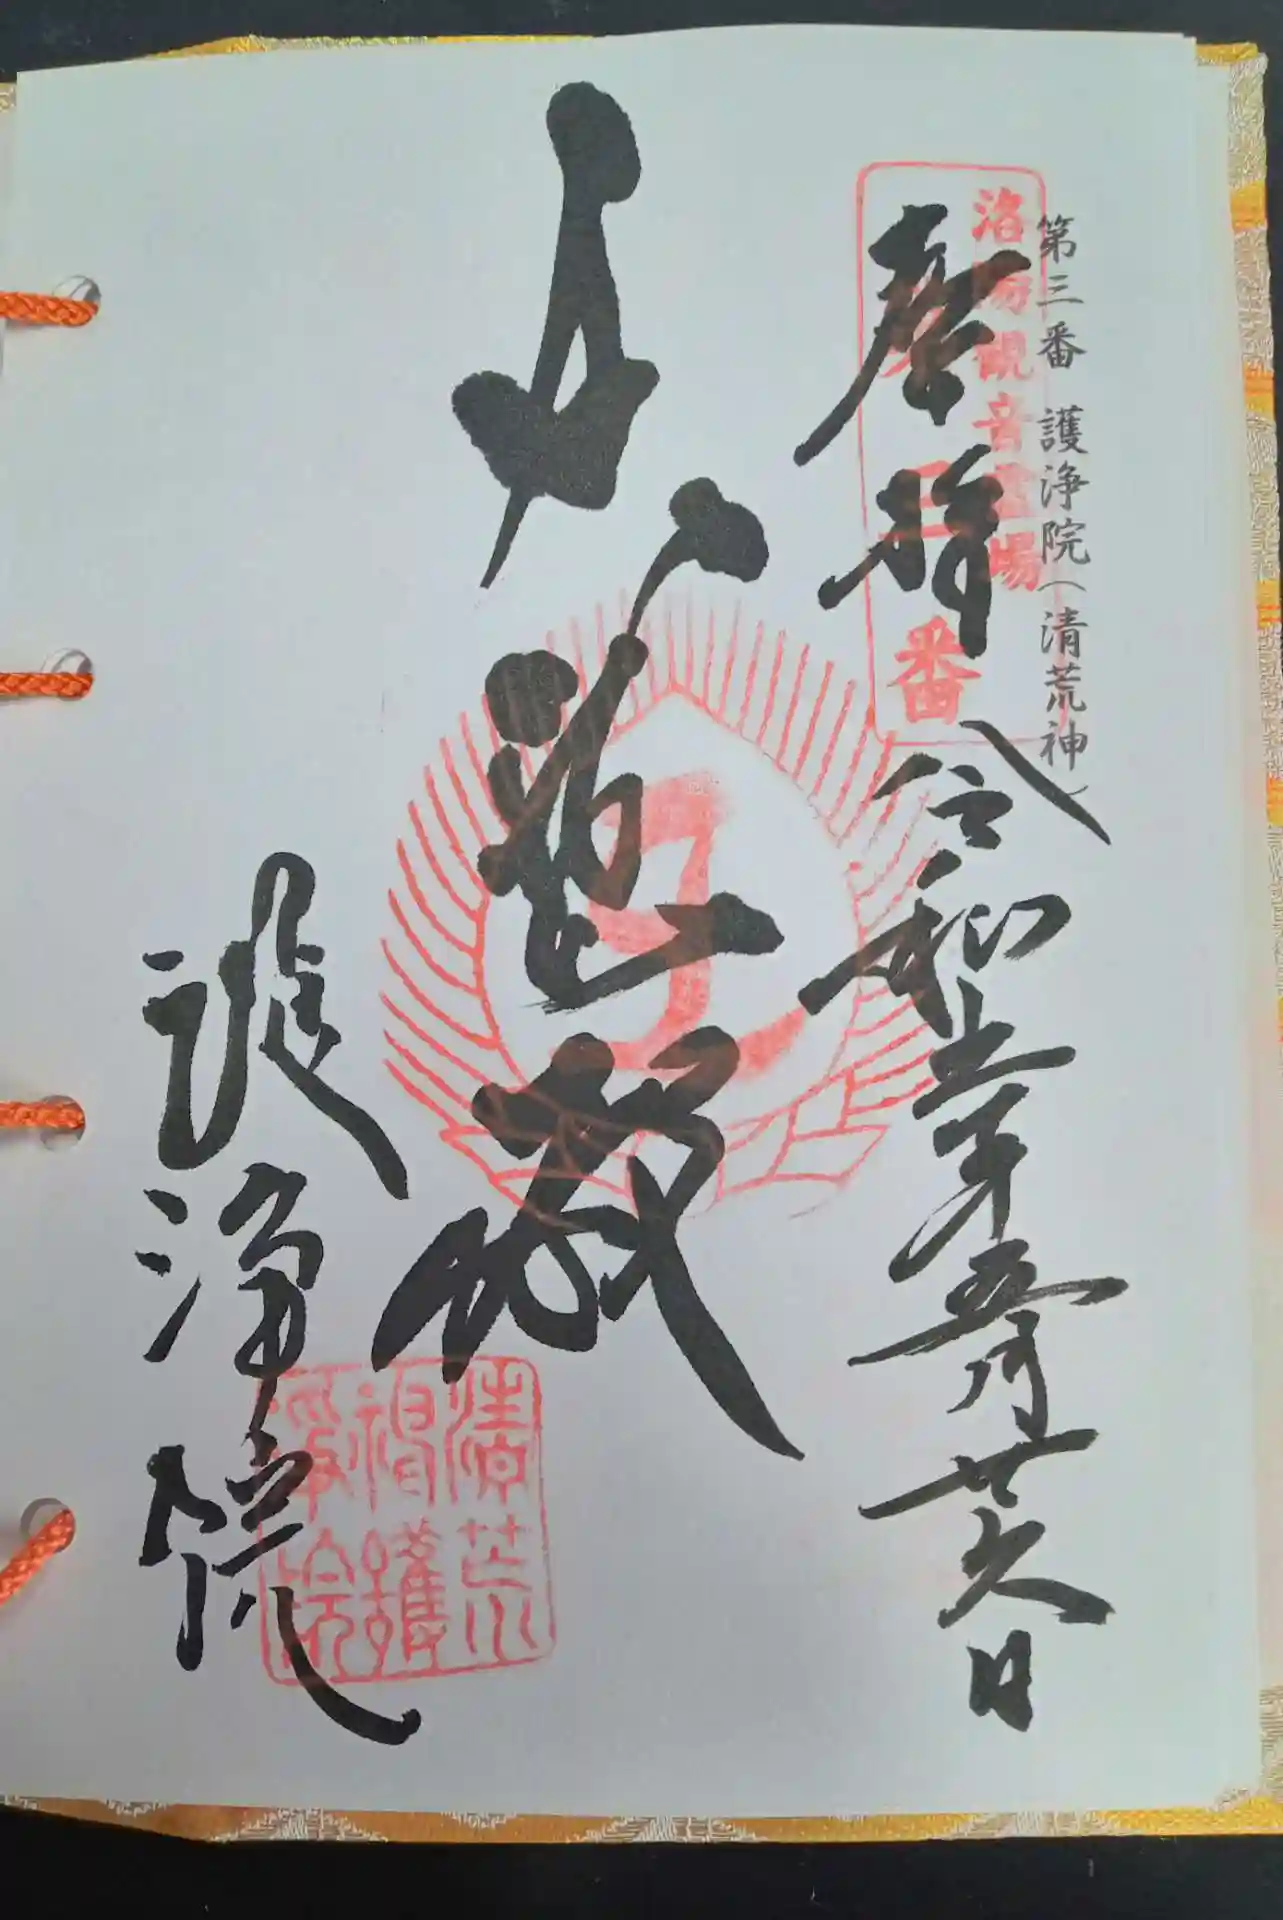 第三番 護浄院(清荒神)
洛陽観音霊場
第三番
奉拝 令和五年五月廿 日
大悲殿
護浄院
清荒
神護
浄院